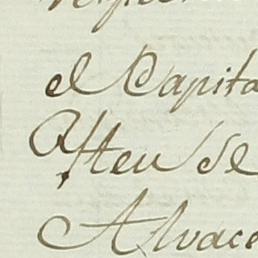 el Capita
Atteu de
Alvace